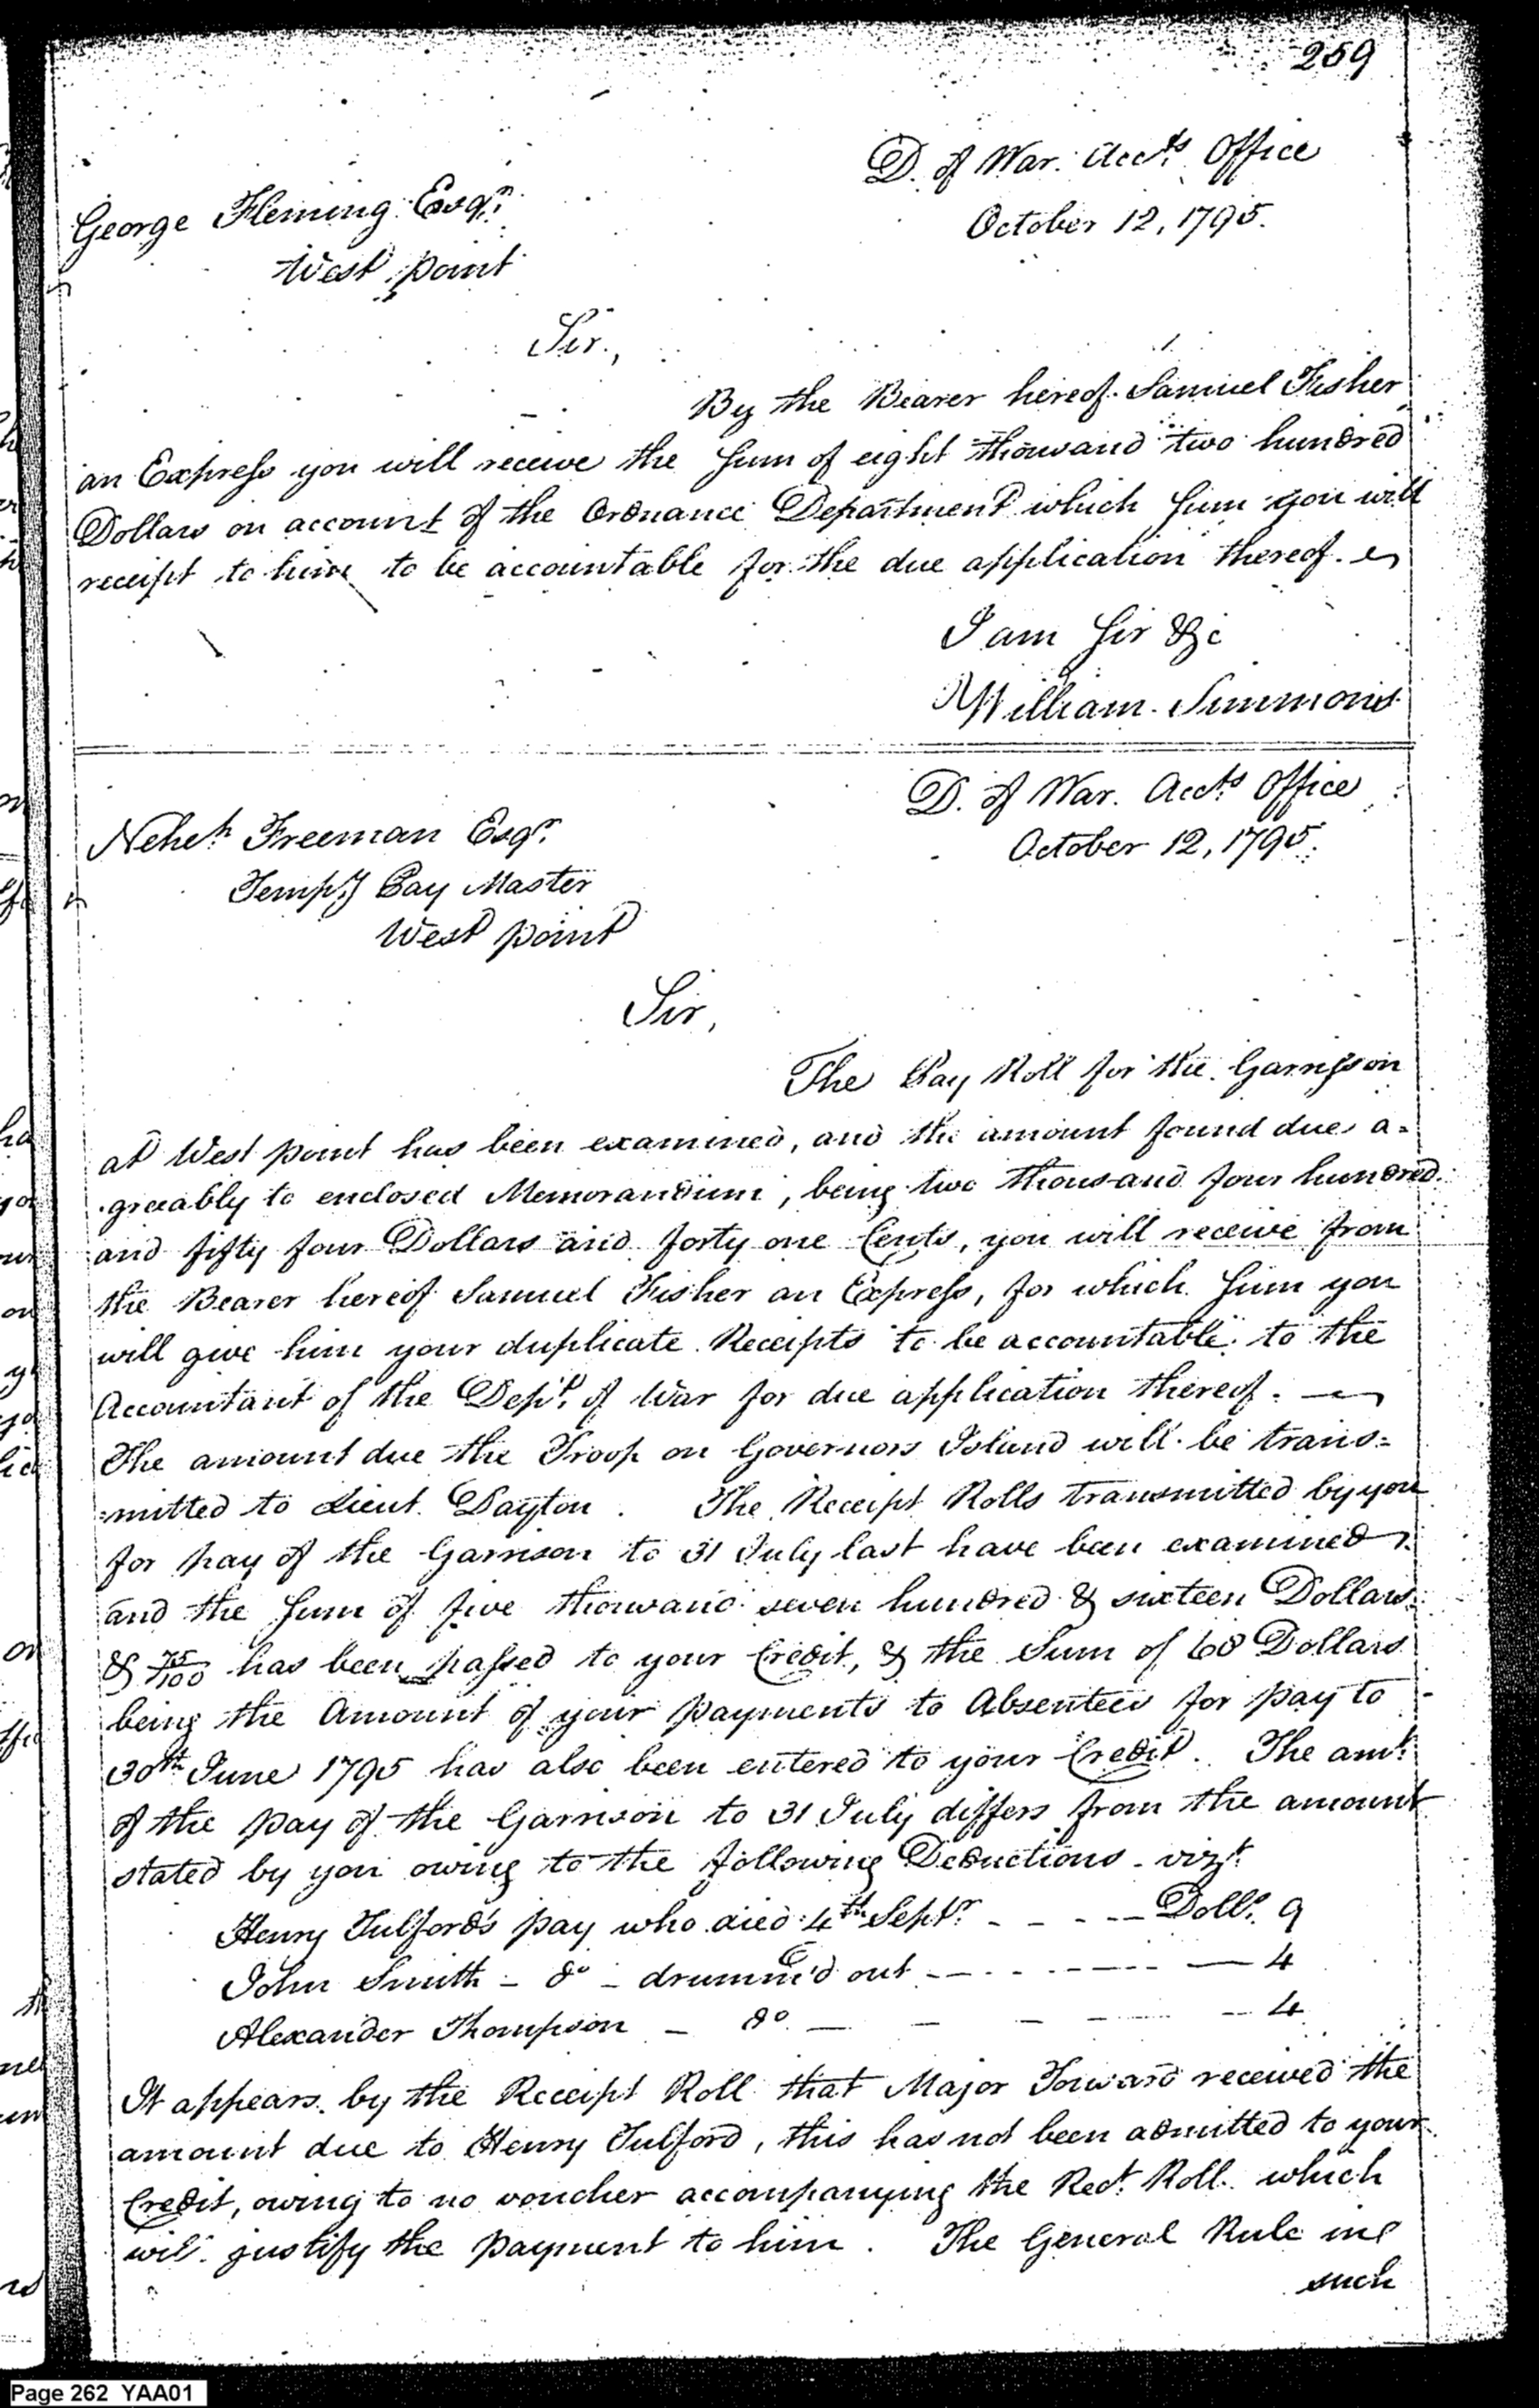 259
D. of War. Accts. Office
October 12, 1795.
George Fleming Esqr.
West point
Sir.,
By the Bearer hereof Samuel Fisher
an Express you will receive the Sum of eight thousand two hundred
Dollars on account of the Ordnance Department which Sum you will
receipt to him to be accountable for the due application thereof.
I am Sir &c
William Simmons
D. of War. Accts Office
October 12, 1795.
Neheh Freeman Esqr.
Tempy Pay Master
West point
Sir,
The Pay Roll for the Garrison
at West point has been examined, and the amount found due a=
greeably to enclosed Memorandum, being two thousand four hundred
and fifty four Dollars and forty one Cents, you will receive from
the Bearer hereof Samuel Fisher an Express, for which Sum you
will give him your duplicate Receipts to be accountable to the
Accountant of the Dept. of War for due application thereof.
The amount due the Troop on Governors Island will be trans=
=mitted to Lieut. Dayton. The Receipt Rolls transmitted by you
for pay of the Garrison to 31 July last have been examined
and the Sum of five thousand seven hundred & sixteen Dollars
& 75/100 has been passed to your Credit, & the Sum of 68 Dollars
being the Amount of your payments to Absentees for pay to
30th June 1795 has also been entered to your Credit. The amt.
of the pay of the Garrison to 31 July differs from the amount
stated by you owing to the following Deductions - vizt.
Henry Tulford's pay who died 4th Septr. - - - - Dolls. 9
John Smith - do - drumm'd out - - - - - 4
Alexander Thompson - do - - - - - 4
It appears by the Receipt Roll that Major Toward received the
amount due to Henry Tulford, this has not been admitted to your
Credit, owing to no voucher accompanying the Rect. Roll which
will justify the payment to him. The General Rule in
such
Page 262 YAA01